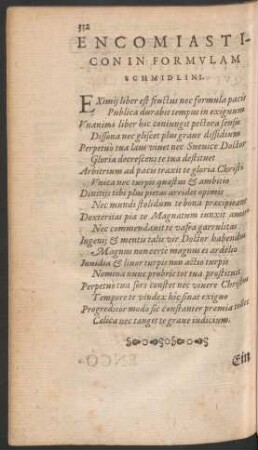 312
ENCOMIASTI-
CON IN FORMVLAM
SCHMIDLINI.
EXimij liber est fructus nec formula pacis
Publica durabit tempus in exiguum
Vnanimi liber hic coniungit pectora sensu
Dissona nec gliscet plus graue dissidium
Perpetuò tua laus viuet nec Sueuice Doctor
Gloria decrescens te tua destituet
Arbitrium ad pacis traxit te gloria Christi
Vnica nec turpis quæstus & ambitio
Diuitijs tibi plus pietas arridet opimis
Nec mundi stolidum te bona præcipitant
Dexteritas pia te Magnatum iunxit amori
Nec commendauit te vafra garrulitas
Ingenij & mentis talis vir Doctor habendus
Magnus non certè magnus es ardelio
Inuidia & liuor turpis non actio turpis
Nomina nunc probris tot tua prostituit
Perpetuò tua sors constet nec viuere Christus
Tempore te vindex hic sinat exiguo
Progredior modo sic constanter premia tollet
Cælica nec tanget te graue iudicium.
ENCO-
Ein